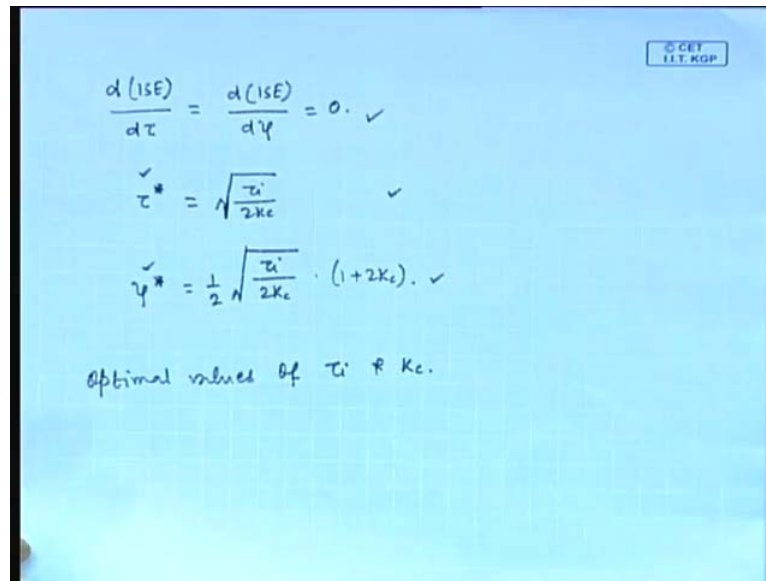 © CET
I.I.T. KGP
d(ISE)/dτ = d(ISE)/dψ = 0. ✓
τ* = √(τi/2Kc) ✓
ψ* = 1/2 √(τi/2Kc) · (1+2Kc). ✓
Optimal values of τi & Kc.